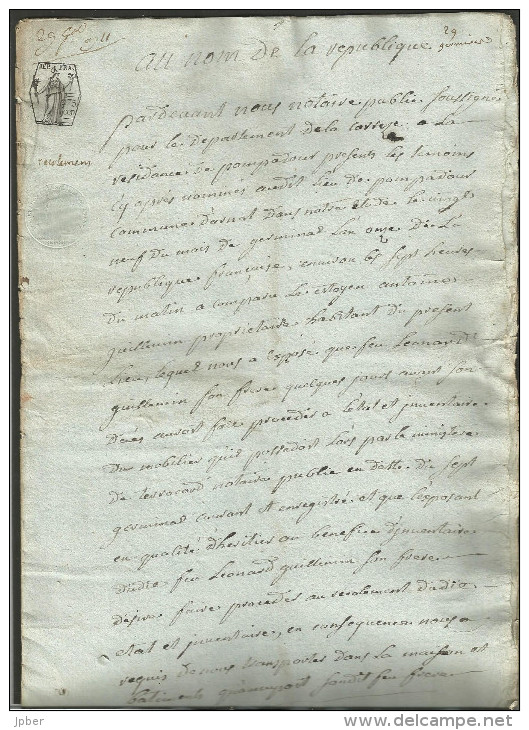 29 Gal an 11
29 germinal
au nom de la republique
REP. FRA.
recolement
pardevant nous notaire public soussigné
pour le departement de la correze a la
residance de pompadour presents les temoins
cy après nommés audit lieu de pompadour
commune d'arnat dans notre etude le vingt
neuf du mois de germinal l'an onze de la
republique française, environ les sept heures
du matin a comparu le citoyen antoine
guillemin proprietaire habitant du present
lieu, lequel nous a exposé que feu Leonard
guillemin son frere quelques jours avant son
décés auroit fait procéder a l'etat et inventaire
du mobilier qu'il possedoit lors par le ministere
de terracord notaire public en datte du sept
germinal courant et enregistré et que l'exposant
en qualité d'heritier au benefice d'inventaire
dudit feu Leonard guillemin son frere
desire faire proceder au recolement dudit
etat et inventaire, en consequence nous a
requis de nous transporter dans la maison et
batiments qu'occupoit sondit feu frere
jpber
www.delcampe.net